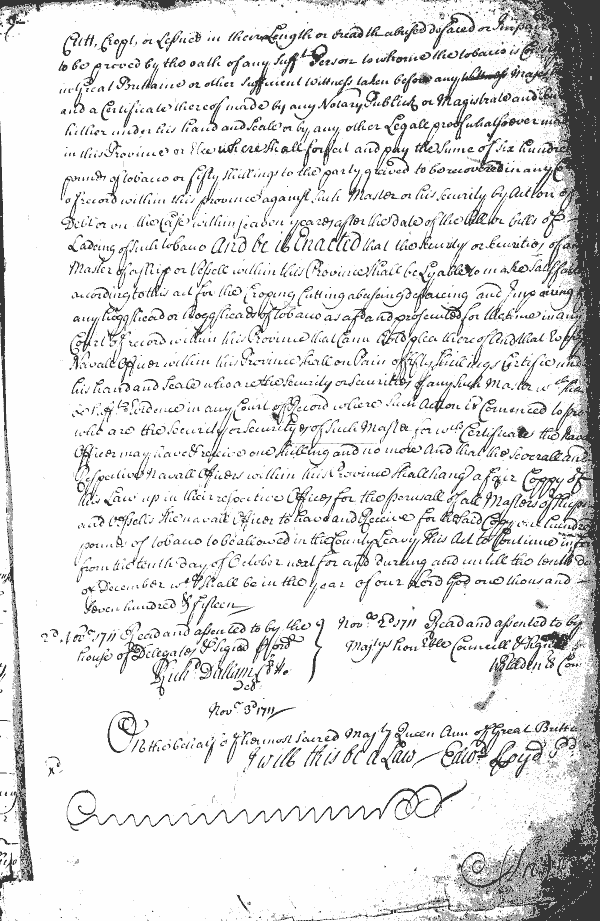 Cutt, Cropt, or Lessned in their Length or bread th abused defaced or
to be proved by the oath of any suff.t Person to whome the tobacco is
in Great Brittaine or other sufficient Wittness taken before any
and a Certificate thereof made by any Notary Publick or Magistrate and
hither under his hand and Seale or by any other Legall proof whatsoever
in this Province or Else where shall forfeit and pay the Sume of Six hundred
pounds of tobacco or fifty shillings to the party grieved to be recovered in any
of record within this province against Such Master or his Security by Action of
Debt or on the Case within Seaven years after the date of the bill or bills of
Ladeing of such tobacco And be it Enacted that the Security or Securities of any
Master of a Ship or Vessell within this Province shall be Lyable to make
according to this act for the Croping Cutting abuseing defaceing and Impairing
any hogshead or hoggsheads of tobacco as afd and prosecuted for
Court of record within this Province that Cann hold plea thereof And that Every
Navall Officer within this Province shall on Pain of fifty shillings Certifie under
his hand and Seale who are the Security or Securities of any Such Master
Evidence in any Court of Record where Such Action is Comenced to
who are the Security or Securitys of Such Master for wch Certificate the Navall
Officer may have & receive one shilling and no more And that the Severall and
Respective Navall Officers within this Province shall hang a fair Coppy of
this Law up in their respective Offices for the perusall of all Masters of Ships
and Vessells the navall Officer to have and Receive for the said Coppy one hundred
pounds of tobacco to be allowed in the County Leavy This Act to Continue in
from the tenth day of October next for and dureing and untill the tenth
of December wch shall be in the year of our Lord God one thousand
Seven hundred & fifteen
2d. Nov.r 1711 Read and assented to by the
house of Delegates & Signd p ord.r
Rich.d Dallam Cl Ho
Del
Nov.r 2d 1711 Read and assented to by
Maj.tys hon.ble Councill & Signd
Cou
Nov.r 3d 1711
On the behalf of her most sacred Maj.ty Queen Ann of Great Britta
I will this be a Law Edw.d Lloyd